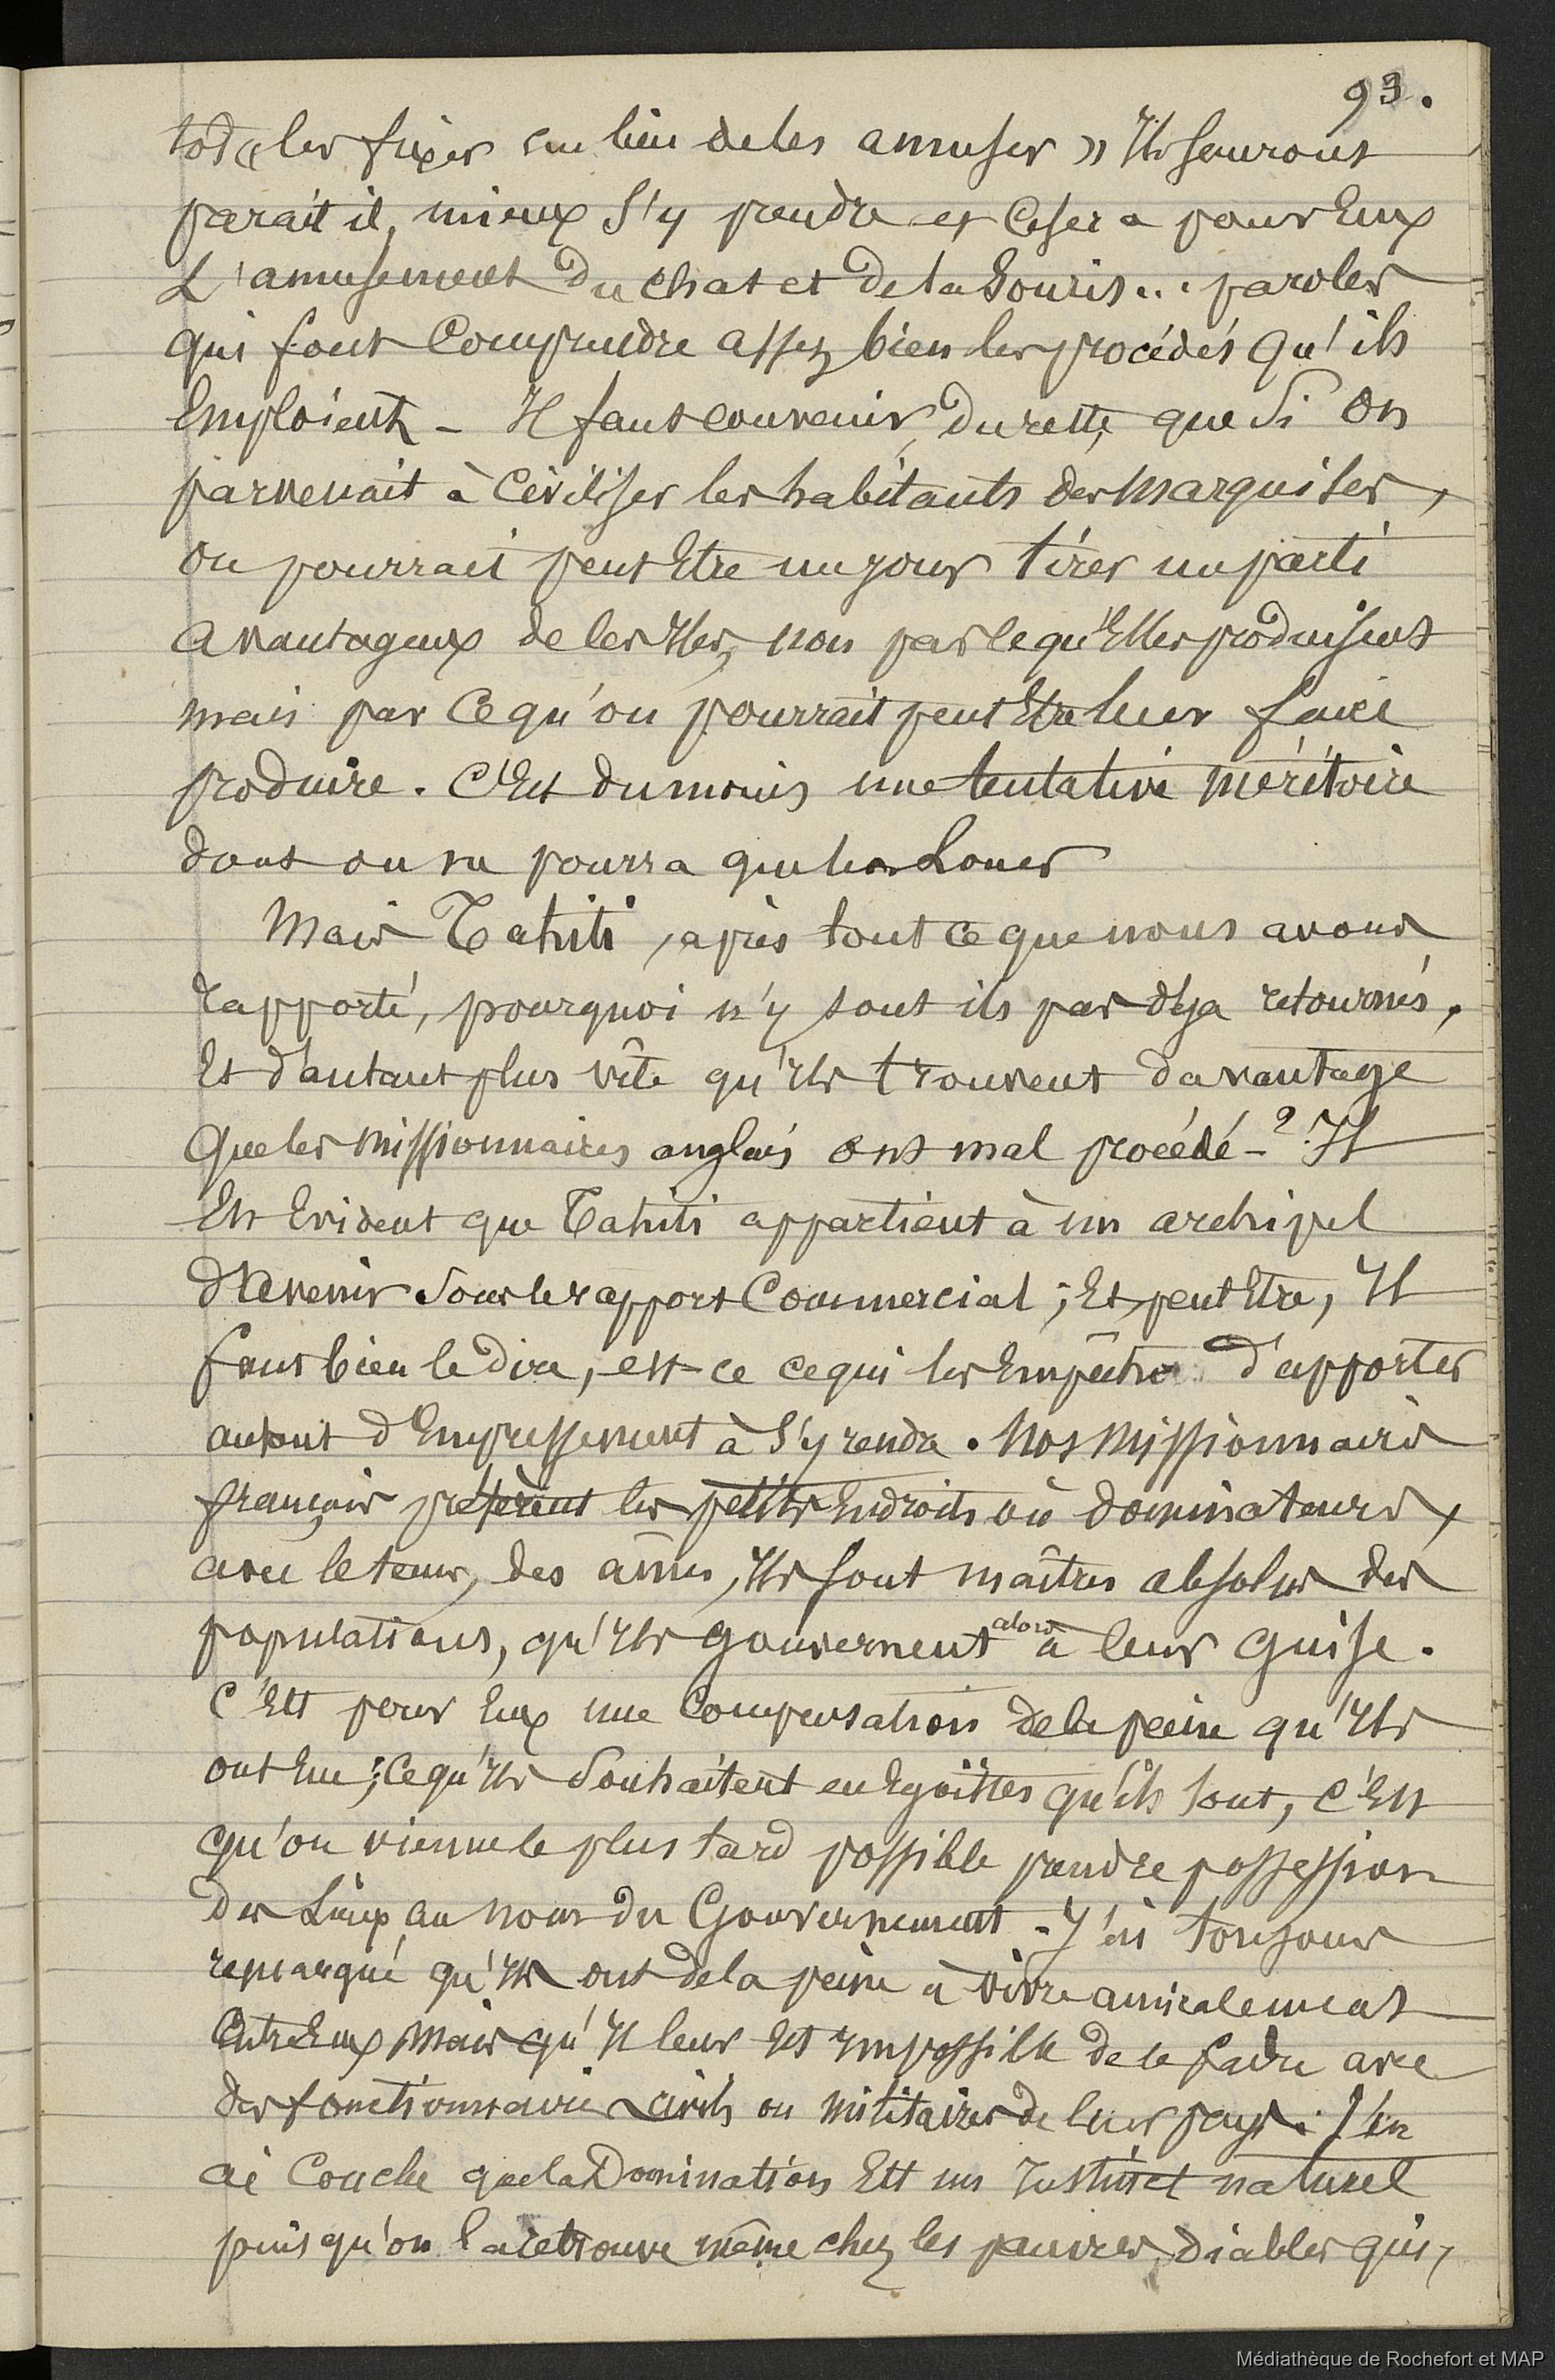 93.
tôt « les fixer au lieu de les amuser » Ils sauront
parait il, mieux s'y prendre et ce sera pour Eux
L'amusement du chat et de la Souris... paroles
qui font Comprendre assez bien les procédés qu'ils
Emploient - Il faut convenir, du reste, que si on
parvenait à Civiliser les habitants des Marquises,
on pourrait peut Etre un jour tirer un parti
avantageux de ces Iles, non par ce qu'Elles produisent
mais par ce qu'on pourrait peut Etre leur faire
produire. C'Est du moins une tentative méritoire
dont on ne pourra que les Louer
Mais Tahiti, après tout ce que nous avons
rapporté, pourquoi n'y sont ils pas déja retournés,
Et d'autant plus vite qu'Ils trouvent davantage
que les missionnaires anglais ont mal procédé - ? Il
Est Evident que Tahiti appartient à un archipel
d'avenir sous le rapport Commercial ; Et peut Etre, Il
faut bien le dire, est ce ce qui les Empêche d'apporter
autant d'Empressement à s'y rendre. Nos Missionnaires
français préfèrent les petits Endroits où dominateurs,
avec le tems, des âmes, Ils sont maîtres absolus des
populations, qu'Ils gouvernent alors à leur guise.
C'Est pour Eux une Compensation de la peine qu'Ils
ont Eue ; ce qu'Ils souhaitent en Egoïstes qu'ils sont, c'Est
qu'on vienne le plus tard possible prendre possession
des Lieux au nom du Gouvernement - J'ai toujours
remarqué qu'Ils ont de la peine à vivre amicalement
Entre Eux mais qu'Il leur Est Impossible de le faire avec
des fonctionnaires civils ou militaires de leur pays. J'en
ai Conclu que la Domination Est un Instinct naturel
puisqu'on la retrouve même chez les pauvres diables qui,
Médiathèque de Rochefort et MAP